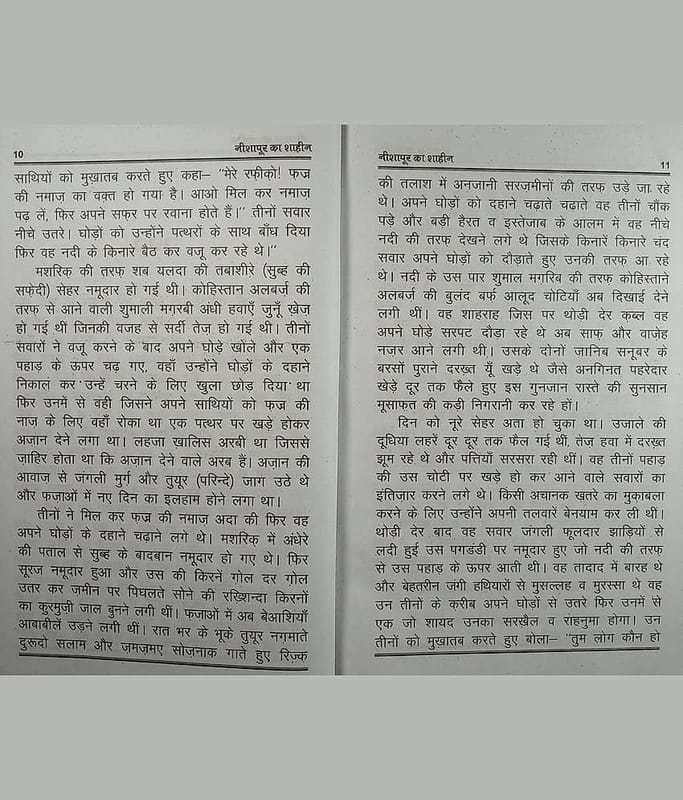 10
नीशापूर का शाहीन
साथियों को मुख़ातब करते हुए कहा– "मेरे रफ़ीको! फ़ज्र
की नमाज़ का वक़्त हो गया है। आओ मिल कर नमाज़
पढ़ लें, फिर अपने सफ़र पर रवाना होते हैं।'' तीनों सवार
नीचे उतरे। घोड़ों को उन्होंने पत्थरों के साथ बाँध दिया
फिर वह नदी के किनारे बैठ कर वजू कर रहे थे।''
मशरिक़ की तरफ़ शब यलदा की तबाशीरे (सुब्ह की
सफ़ेदी) सेहर नमूदार हो गई थी। कोहिस्तान अलबर्ज़ की
तरफ़ से आने वाली शुमाली मग़रबी अंधी हवाएँ जुनूँ ख़ेज़
हो गई थीं जिनकी वजह से सर्दी तेज़ हो गई थी। तीनों
सवारों ने वजू करने के बाद अपने घोड़े खोले और एक
पहाड़ के ऊपर चढ़ गए, वहाँ उन्होंने घोड़ों के दहाने
निकाल कर उन्हें चरने के लिए खुला छोड़ दिया था
फिर उनमें से वही जिसने अपने साथियों को फ़ज्र की
नाज के लिए वहाँ रोका था एक पत्थर पर खड़े होकर
अज़ान देने लगा था। लहजा ख़ालिस अरबी था जिससे
ज़ाहिर होता था कि अज़ान देने वाले अरब हैं। अज़ान की
आवाज़ से जंगली मुर्ग़ और तुयूर (परिन्दे) जाग उठे थे
और फजाओं में नए दिन का इलहाम होने लगा था।
तीनों ने मिल कर फज्र की नमाज़ अदा की फिर वह
अपने घोड़ों के दहाने चढ़ाने लगे थे। मशरिक़ में अंधेरे
की पताल से सुब्ह के बादबान नमूदार हो गए थे। फिर
सूरज नमूदार हुआ और उस की किरनें ग़ोल दर ग़ोल
उतर कर ज़मीन पर पिघलते सोने की रख़्शिन्दा किरनों
का कुरमुज़ी जाल बुनने लगी थीं। फजाओं में अब बेआशियाँ
आबाबीलें उड़ने लगी थीं। रात भर के भूके तुयूर नगमाते
दुरूदो सलाम और ज़मज़मए सोज़नाक़ गाते हुए रिज़्क
नीशापूर का शाहीन
11
की तलाश में अनजानी सरज़मीनों की तरफ़ उड़े जा रहे
थे। अपने घोड़ों को दहाने चढ़ाते चढ़ाते वह तीनों चौंक
पड़े और बड़ी हैरत व इस्तेजाब के आलम में वह नीचे
नदी की तरफ़ देखने लगे थे जिसके किनारें किनारे चंद
सवार अपने घोड़ों को दौड़ाते हुए उनकी तरफ़ आ रहे
थे। नदी के उस पार शुमाल मग़रिब की तरफ़ कोहिस्ताने
अलबर्ज़ की बुलंद बर्फ आलूद चोटियाँ अब दिखाई देने
लगी थीं। वह शाहराह जिस पर थोड़ी देर क़ब्ल वह
अपने घोड़े सरपट दौड़ा रहे थे अब साफ़ और वाज़ेह
नज़र आने लगी थी। उसके दोनों जानिब सनूबर के
बरसों पुराने दरख़्त यूँ खड़े थे जैसे अनगिनत पहरेदार
खेड़े दूर तक फैले हुए इस गुनजान रास्ते की सुनसान
मूसाफ़त की कड़ी निगरानी कर रहे हों।
दिन को नूरे सेहर अता हो चुका था। उजाले की
दूधिया लहरें दूर दूर तक फैल गई थीं, तेज़ हवा में दरख़्त
झूम रहे थे और पत्तियाँ सरसरा रही थीं। वह तीनों पहाड़
की उस चोटी पर खड़े हो कर आने वाले सवारों का
इंतिज़ार करने लगे थे। किसी अचानक ख़तरे का मुक़ाबला
करने के लिए उन्होंने अपनी तलवारें बेनयाम कर ली थीं।
थोड़ी देर बाद वह सवार जंगली फूलदार झाड़ियों से
लदी हुई उस पगडंडी पर नमूदार हुए जो नदी की तरफ़
से उस पहाड़ के ऊपर आती थी। वह तादाद में बारह थे
और बेहतरीन जंगी हथियारों से मुसल्लह व मुरस्सा थे वह
उन तीनों के क़रीब अपने घोड़ों से उतरे फिर उनमें से
एक जो शायद उनका सरख़ैल व राहनुमा होगा। उन
तीनों को मुख़ातब करते हुए बोला– "तुम लोग कौन हो